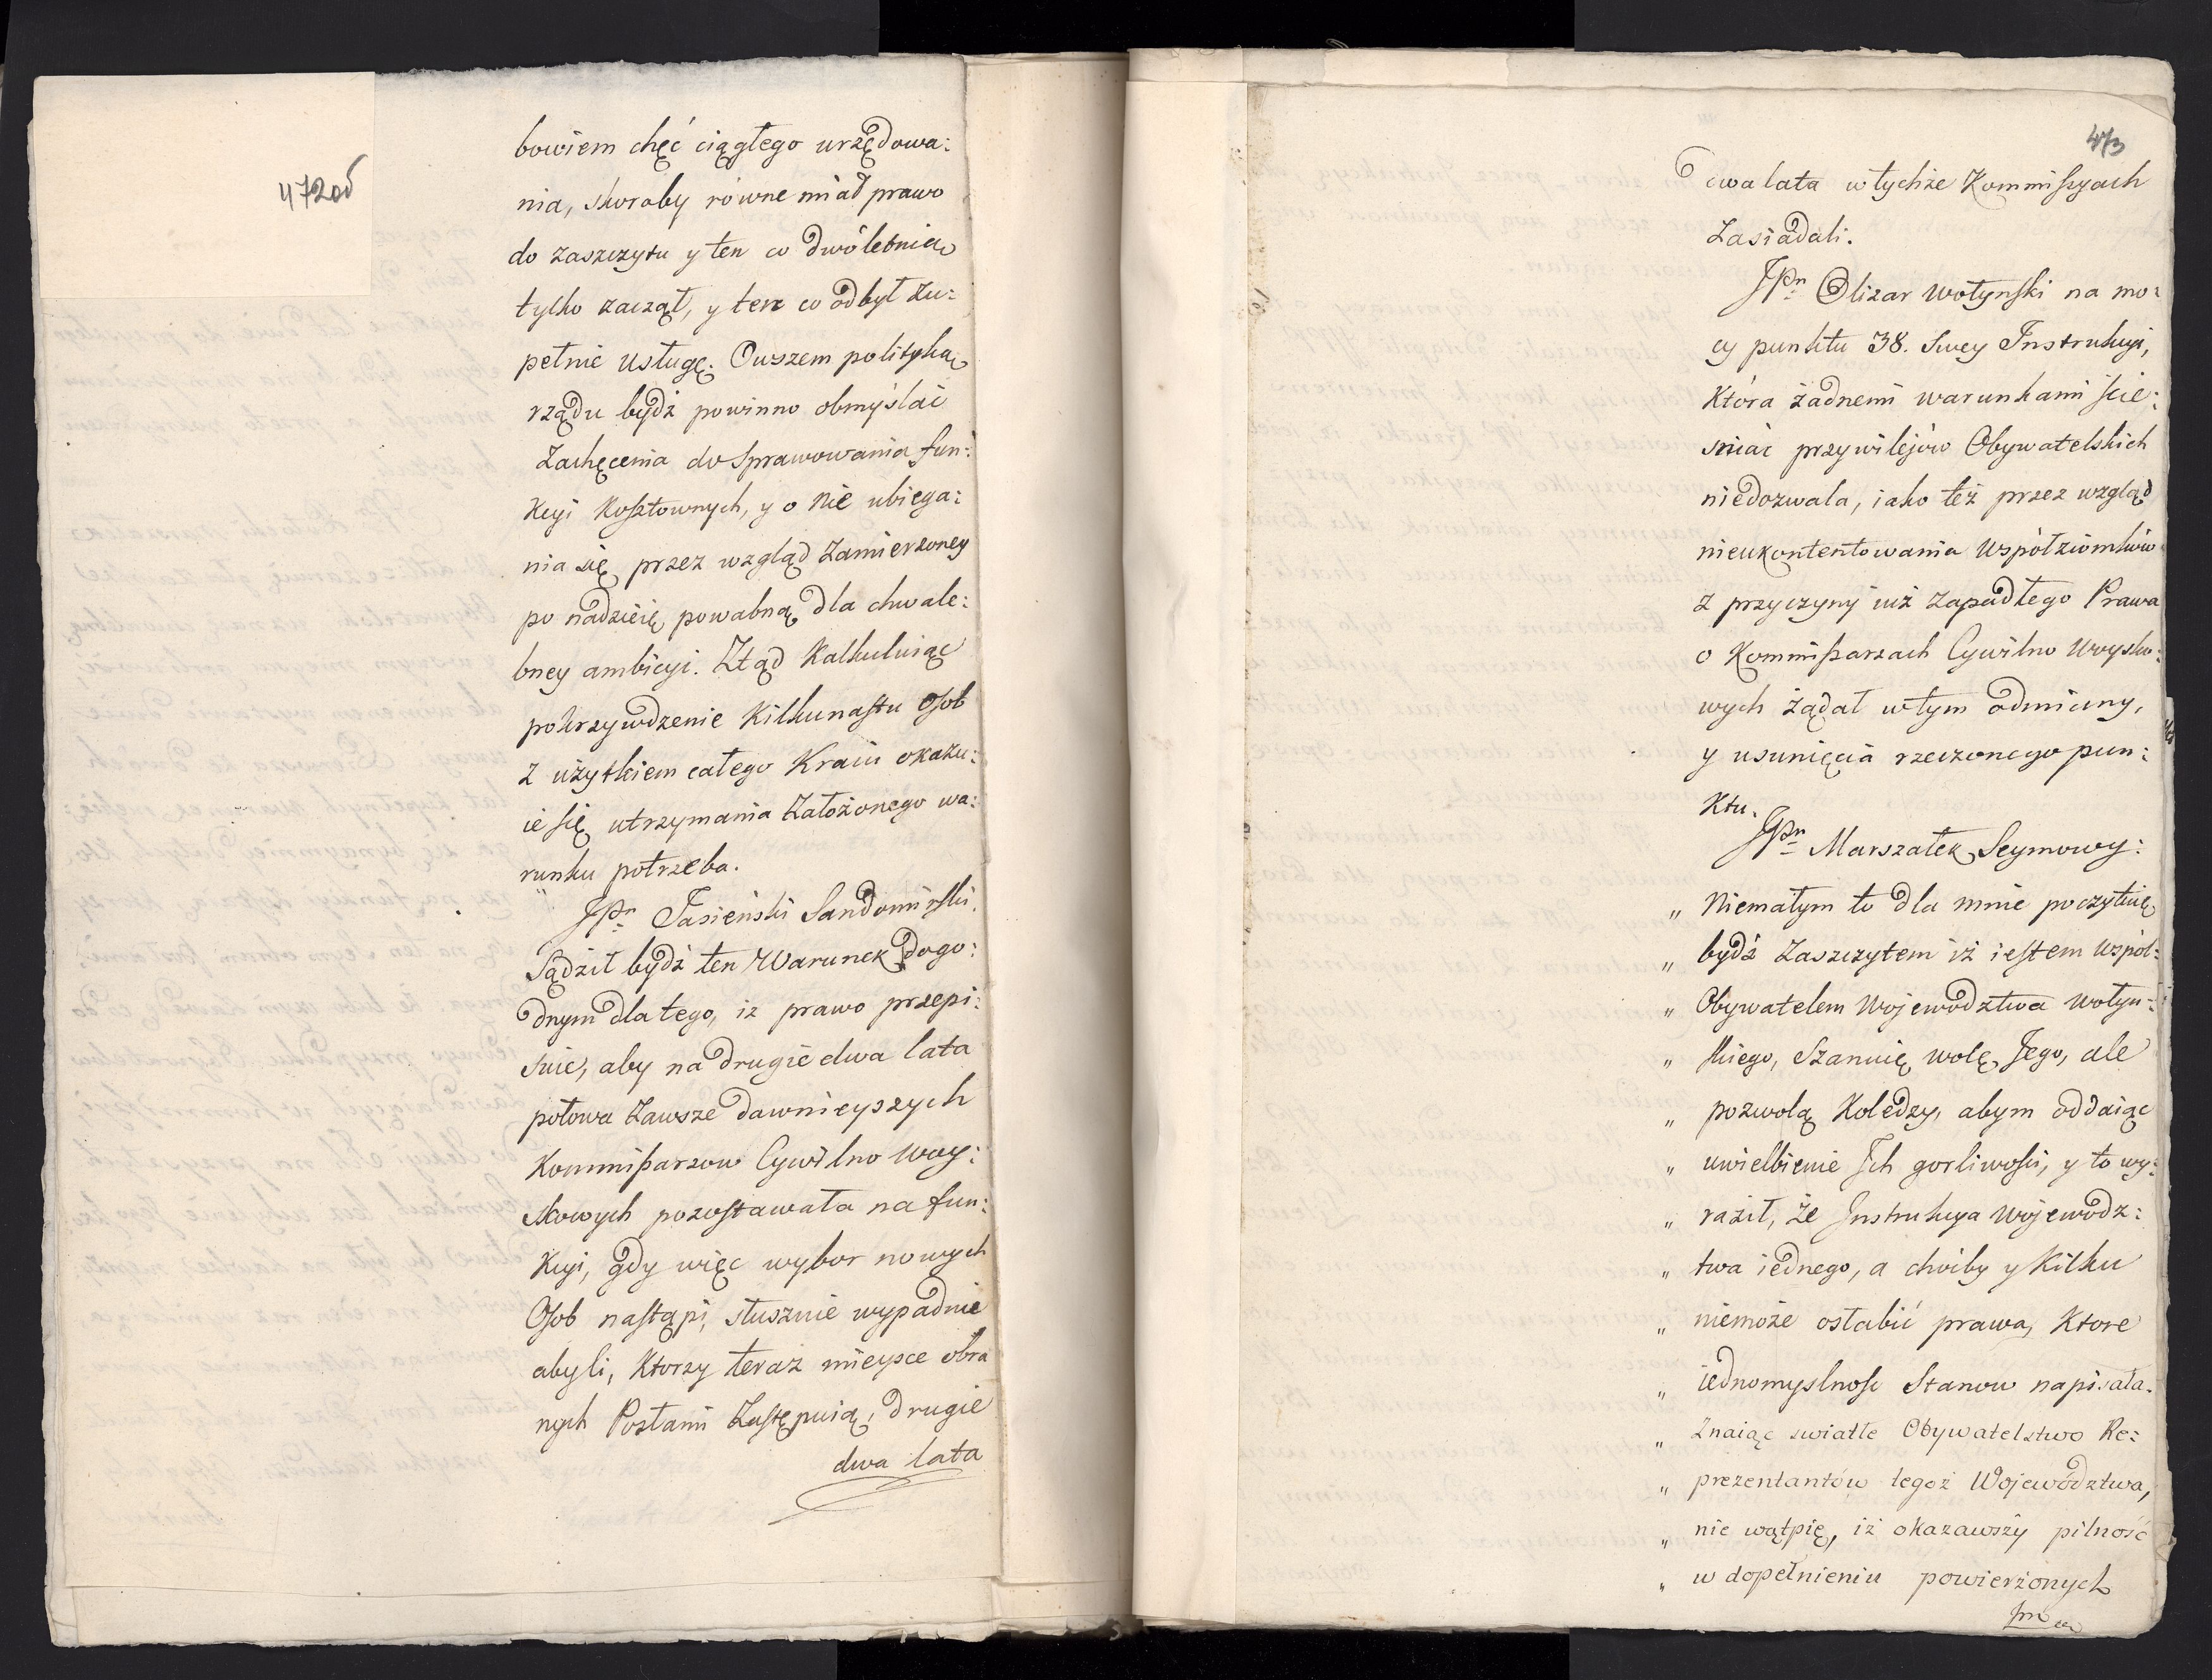 472 об
bowiem chęć ciągłego urzędowa:
nia, skoroby równe miał prawo
do zaszczytu y ten co dwóletnią
tylko zaczął, y ten co odbył zu:
pełnie usługę. Owszem polityką
rządu bydź powinno obmyślać
Zachęcenia do Sprawowania fun:
kcyi kosztownych, y o nie ubiega:
nia się przez wzgląd zamierzoney
po nadzieię powabną dla chwale:
bney ambicyi. Ztąd kalkuluiąc
pokrzywdzenie kilkunastu osob
z użytkiem całego Kraiu okazu:
ie się utrzymania założonego wa:
runku potrzeba.
JPn Jasieński Sandomirski.
Sądził bydź ten Warunek dogo:
dnym dla tego, iż prawo przepi:
suie, aby na drugie dwa lata
połowa zawsze dawnieyszych
Kommissarzow Cywilno Woy:
skowych pozostawała na fun:
kcyi, gdy więc wybor nowych
Osob nastąpi, słusznie wypadnie
aby ci, ktorzy teraz mieysce obra
nych Posłami Zastępuią, drugie
dwa lata
473
dwa lata w tychże Kommissyach
Zasiadali.
JPn Olizar wołynski na mo:
cy punktu 38. Swey Instrukcyi,
która żadnemi warunkami ście:
sniać przywilejów Obywatelskich
niedozwala, iako też przez wzgląd
nieukontentowania Współziomków
z przyczyny iuż zapadłego Prawa
o Kommissarzach Cywilno Woysko:
wych żądał w tym odmiany,
y usunięcia rzeczonego pun:
ktu.
JPn Marszałek Seymowy:
„ Niemałym to dla mnie poczytuię
„ bydź Zaszczytem iż iestem wspol:
„ Obywatelem Województwa wołyn:
„ skiego, Szanuię wolę Jego, ale
„ pozwolą Koledzy, abym oddaiąc
„ uwielbienie Jch gorliwości, y to wy:
„ raził, że Jnstrukcya Wojewodz:
„ twa iednego, a choćby y kilku
„ niemoże osłabić prawa, ktore
„ iednomyslnosc Stanow napisała.
„ Znaiąc swiatłe Obywatelstwo Re:
„ prezentantów tegoż Województwa,
„ nie wątpię, iż okazawszy pilność
„ w dopełnieniu powierzonych